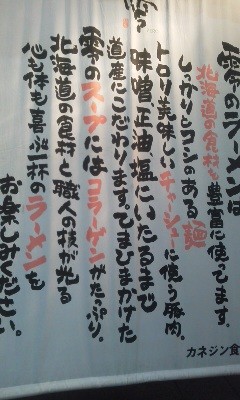 零のラーメンは
北海道の食材を豊富に使ってます。
しっかりとコシのある麺
トロリ美味しいチャーシューに使う豚肉。
味噌正油塩にいたるまで
道産にこだわります。てまひまかけた
零のスープにはコラーゲンがたっぷり。
北海道の食材と職人の技が光る
心も体も喜ぶ一杯のラーメンを
お楽しみください。
カネジン食
零